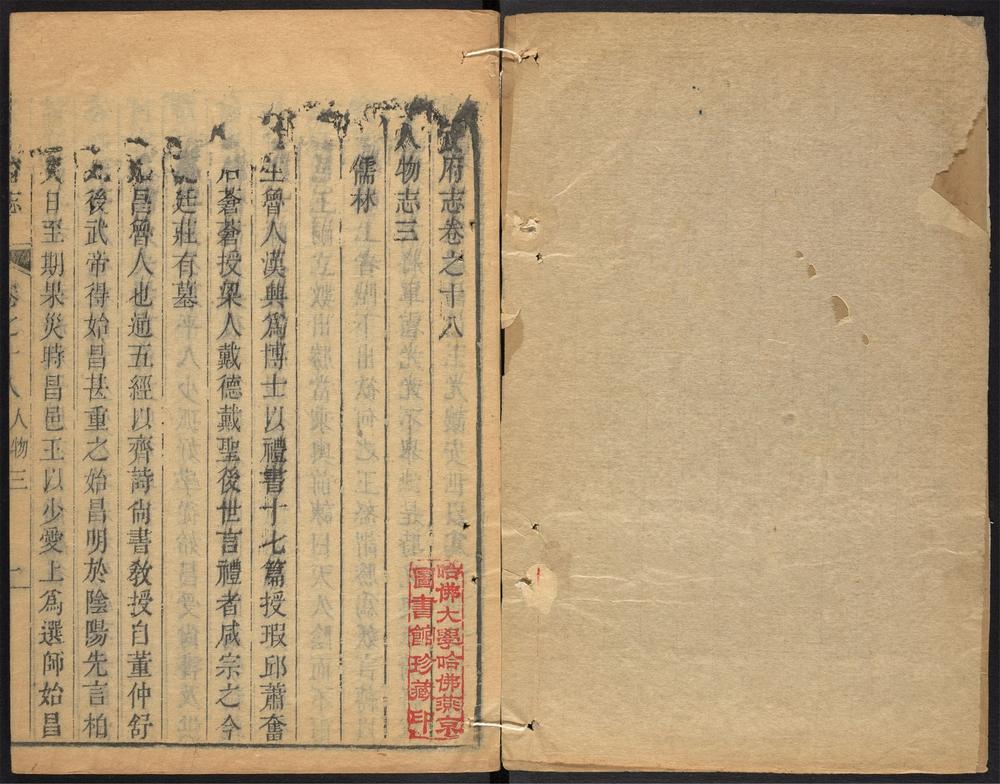 府志卷之十八
人物志三
儒林
生魯人漢興為博士以禮書十七篇授瑕邱蕭奮
后蒼蒼授梁人戴德戴聖後世言禮者咸宗之今
廷莊有墓
始昌魯人也通五經以齊詩尚書教授自董仲舒
後武帝得始昌甚重之始昌明於陰陽先言柏
災日至期果災時昌邑王以少愛上爲選師始昌
志
卷之十八 人物三 一
哈佛大學哈佛燕京
圖書館珍藏印